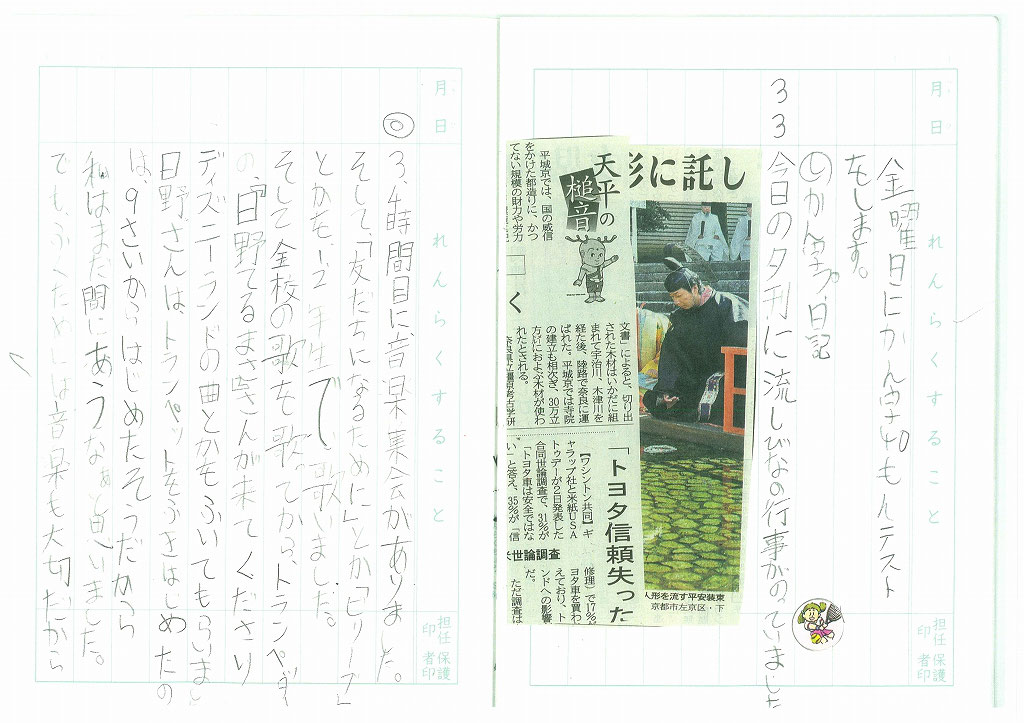 月 日 れんらくすること
担任印 保護者印
金曜日にかん字40もんテスト
をします。
3 3 今日の夕刊に流しびなの行事がのっていました
形に託し
人形を流す平安装束
京都市左京区・下
天平の
槌音
平城京では、国の威信
をかけた都造りに、かつ
てない規模の財力や労力
文書」によると、切り出
された木材はいかだに組
まれて宇治川、木津川を
経た後、陸路で奈良に運
ばれた。平城京では寺院
の建立も相次ぎ、30万立
方㍍におよぶ木材が使わ
れたとされる。
く
「トヨタ信頼失った
米世論調査
【ワシントン共同】ギ
ャラップ社と米紙USA
トゥデーが2日発表した
合同世論調査で、31%が
「トヨタ車は安全ではな
い」と答え、35%が「信
修理」で17%が
ヨタ車を買わ
えており、ト
ンドへの影響
だ。
ただ調査は
月 日 れんらくすること
担任印 保護者印
◎3、4時間目に、音楽集会がありました。
そして、「友だちになるために」とか「ビリーブ」
とかを1、2年生で歌いました。
そして全校の歌も歌ってから、トランペッター
の、日野てるまささんが来てくださり
ディズニーランドの曲とかをふいてもらいまし
日野さんは、トランペットをふきはじめたの
は、9さいからはじめたそうだから
私はまだ間にあうなぁと思いました。
音楽も大切だから